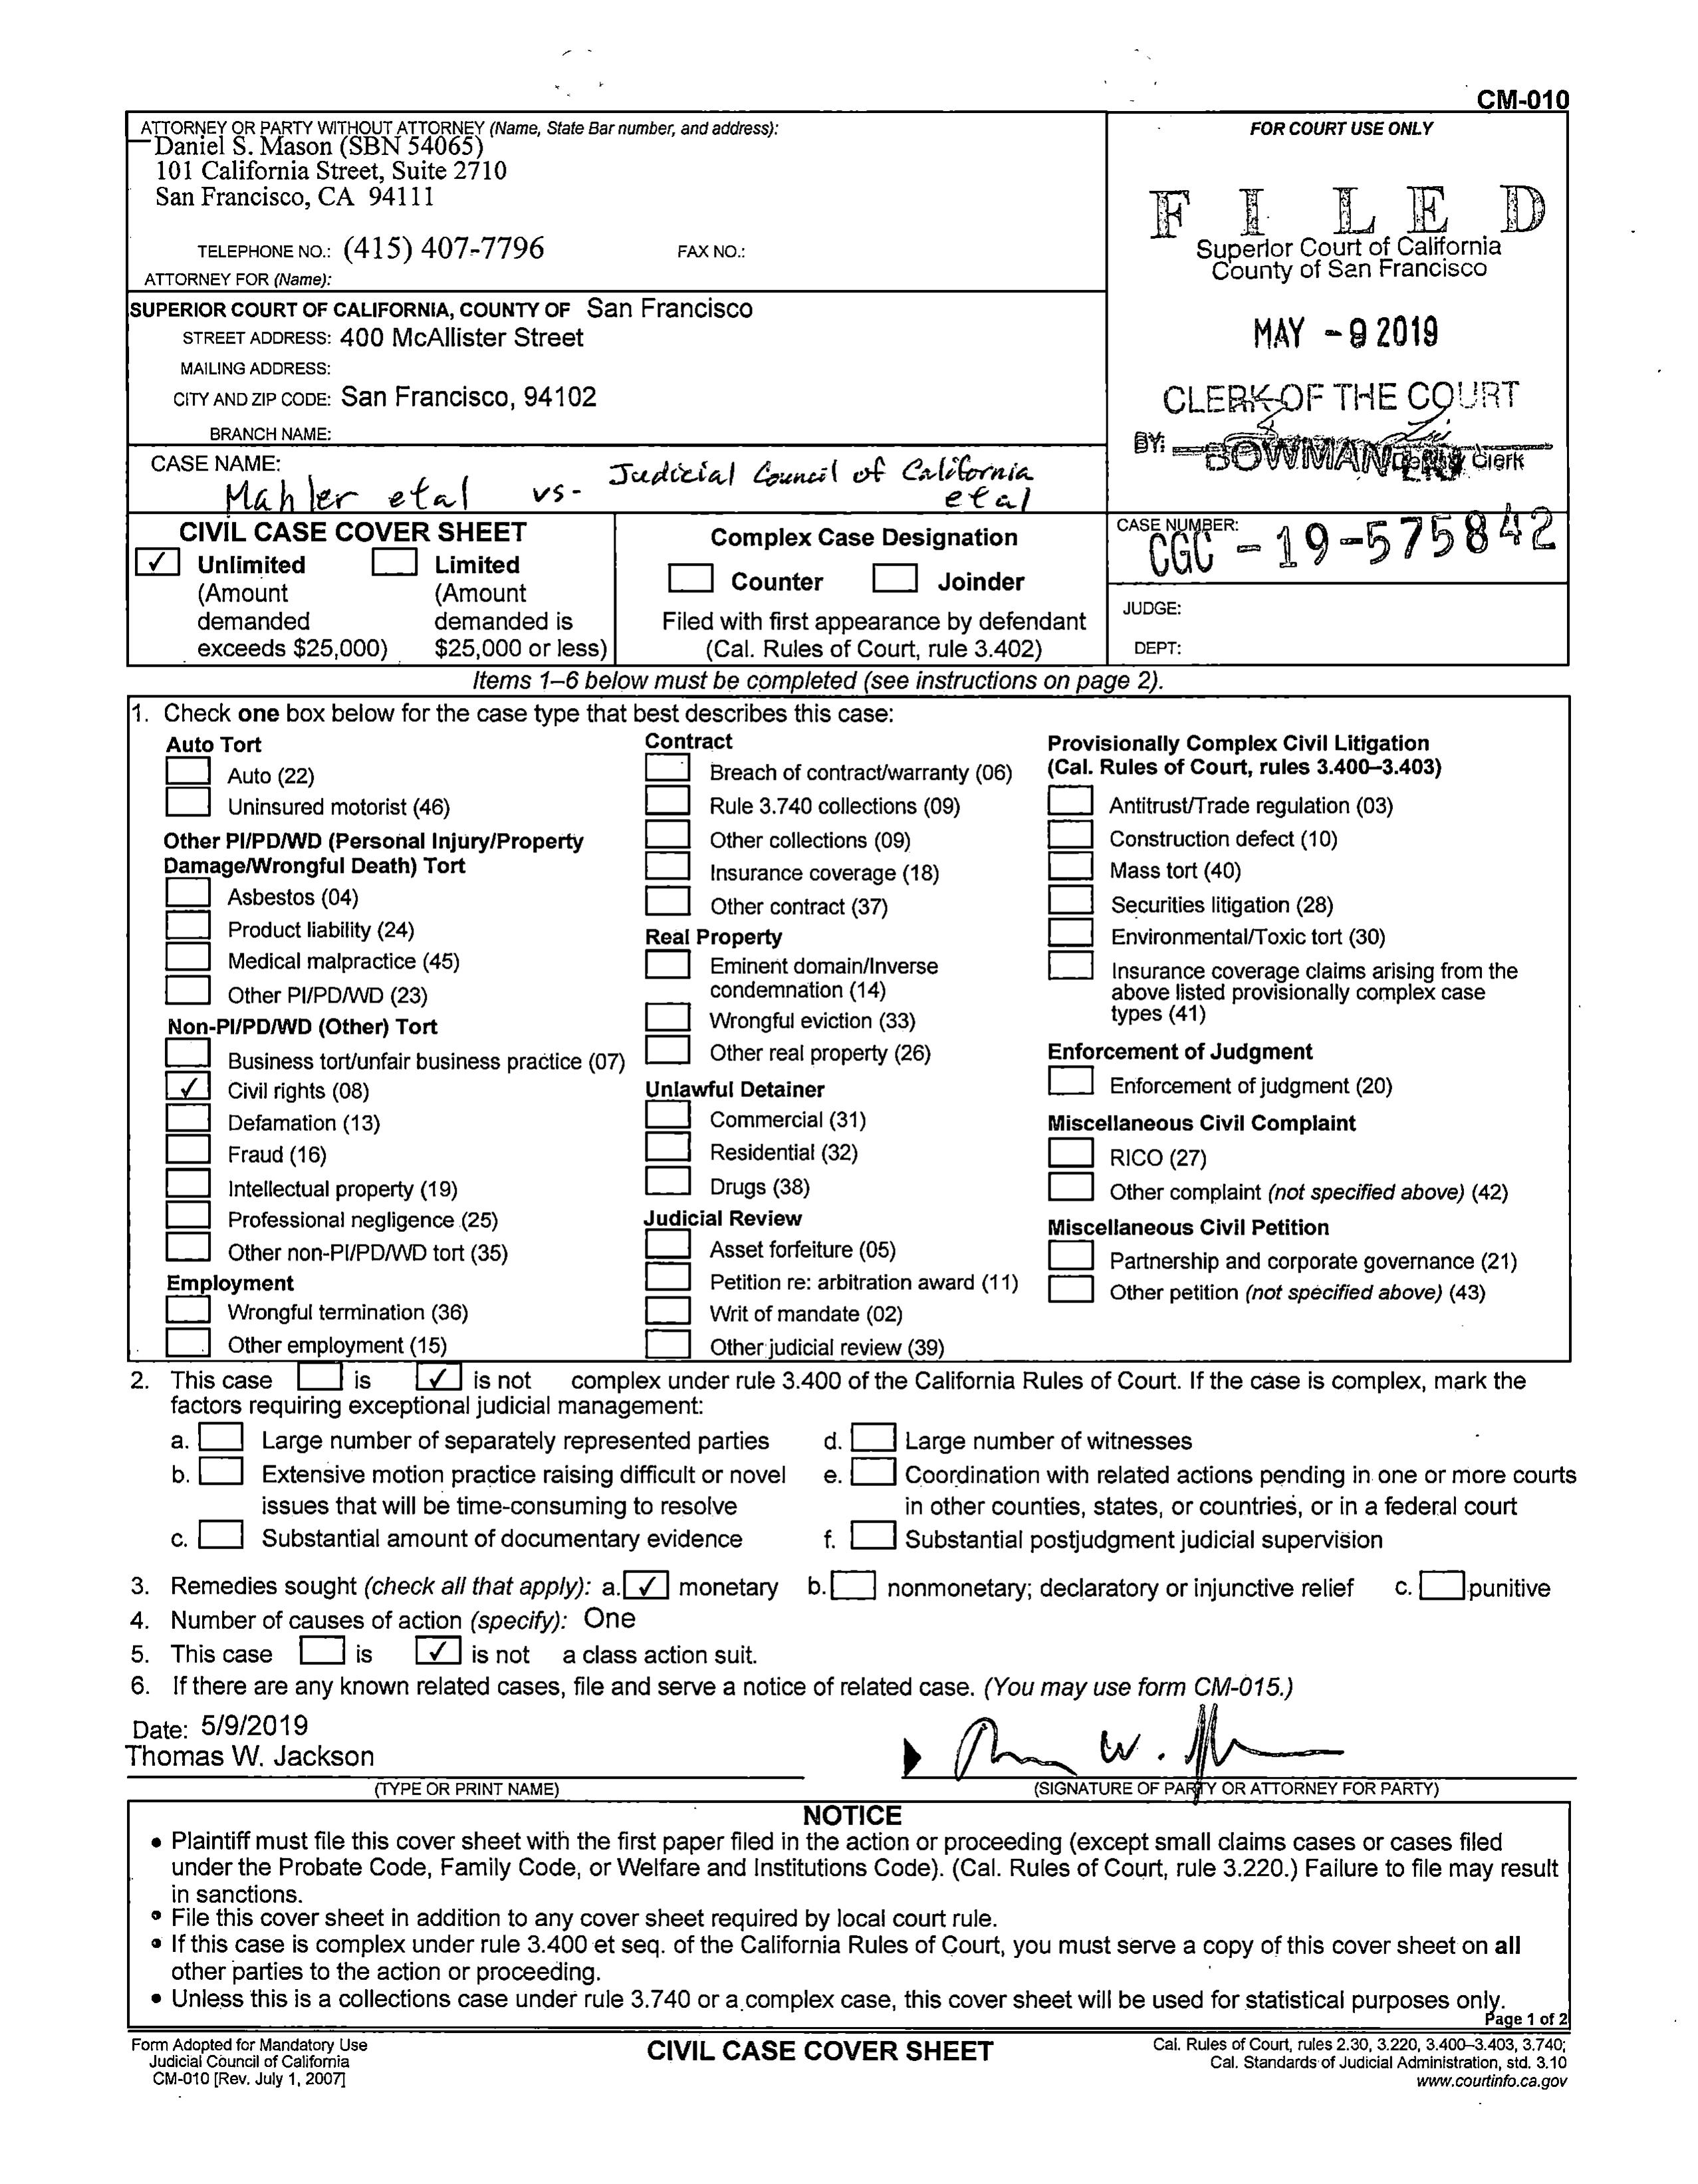 CM-010
ATTORNEY OR PARTY WITHOUT ATTORNEY (Name, State Bar number, and address):
Daniel S. Mason (SBN 54065)
101 California Street, Suite 2710
San Francisco, CA 94111
TELEPHONE NO.: (415) 407-7796 FAX NO.:
ATTORNEY FOR (Name):
FOR COURT USE ONLY
FILED
Superior Court of California
County of San Francisco
MAY - 9 2019
CLERK OF THE COURT
BY: BOWMAN Deputy Clerk
SUPERIOR COURT OF CALIFORNIA, COUNTY OF San Francisco
STREET ADDRESS: 400 McAllister Street
MAILING ADDRESS:
CITY AND ZIP CODE: San Francisco, 94102
BRANCH NAME:
CASE NAME:
Mahler etal vs- Judicial Council of California
etal
CIVIL CASE COVER SHEET
✓ Unlimited Limited
(Amount (Amount
demanded demanded is
exceeds $25,000) $25,000 or less)
Complex Case Designation
Counter Joinder
Filed with first appearance by defendant
(Cal. Rules of Court, rule 3.402)
CASE NUMBER:
CGC - 19-575842
JUDGE:
DEPT:
Items 1–6 below must be completed (see instructions on page 2).
1. Check one box below for the case type that best describes this case:
Auto Tort
Auto (22)
Uninsured motorist (46)
Other PI/PD/WD (Personal Injury/Property
Damage/Wrongful Death) Tort
Asbestos (04)
Product liability (24)
Medical malpractice (45)
Other PI/PD/WD (23)
Non-PI/PD/WD (Other) Tort
Business tort/unfair business practice (07)
✓ Civil rights (08)
Defamation (13)
Fraud (16)
Intellectual property (19)
Professional negligence (25)
Other non-PI/PD/WD tort (35)
Employment
Wrongful termination (36)
Other employment (15)
Contract
Breach of contract/warranty (06)
Rule 3.740 collections (09)
Other collections (09)
Insurance coverage (18)
Other contract (37)
Real Property
Eminent domain/Inverse
condemnation (14)
Wrongful eviction (33)
Other real property (26)
Unlawful Detainer
Commercial (31)
Residential (32)
Drugs (38)
Judicial Review
Asset forfeiture (05)
Petition re: arbitration award (11)
Writ of mandate (02)
Other judicial review (39)
Provisionally Complex Civil Litigation
(Cal. Rules of Court, rules 3.400–3.403)
Antitrust/Trade regulation (03)
Construction defect (10)
Mass tort (40)
Securities litigation (28)
Environmental/Toxic tort (30)
Insurance coverage claims arising from the
above listed provisionally complex case
types (41)
Enforcement of Judgment
Enforcement of judgment (20)
Miscellaneous Civil Complaint
RICO (27)
Other complaint (not specified above) (42)
Miscellaneous Civil Petition
Partnership and corporate governance (21)
Other petition (not specified above) (43)
2. This case is ✓ is not complex under rule 3.400 of the California Rules of Court. If the case is complex, mark the
factors requiring exceptional judicial management:
a. Large number of separately represented parties d. Large number of witnesses
b. Extensive motion practice raising difficult or novel e. Coordination with related actions pending in one or more courts
issues that will be time-consuming to resolve in other counties, states, or countries, or in a federal court
c. Substantial amount of documentary evidence f. Substantial postjudgment judicial supervision
3. Remedies sought (check all that apply): a. ✓ monetary b. nonmonetary; declaratory or injunctive relief c. punitive
4. Number of causes of action (specify): One
5. This case is ✓ is not a class action suit.
6. If there are any known related cases, file and serve a notice of related case. (You may use form CM-015.)
Date: 5/9/2019
Thomas W. Jackson
(TYPE OR PRINT NAME) (SIGNATURE OF PARTY OR ATTORNEY FOR PARTY)
NOTICE
• Plaintiff must file this cover sheet with the first paper filed in the action or proceeding (except small claims cases or cases filed
under the Probate Code, Family Code, or Welfare and Institutions Code). (Cal. Rules of Court, rule 3.220.) Failure to file may result
in sanctions.
• File this cover sheet in addition to any cover sheet required by local court rule.
• If this case is complex under rule 3.400 et seq. of the California Rules of Court, you must serve a copy of this cover sheet on all
other parties to the action or proceeding.
• Unless this is a collections case under rule 3.740 or a complex case, this cover sheet will be used for statistical purposes only.
Page 1 of 2
Form Adopted for Mandatory Use
Judicial Council of California
CM-010 [Rev. July 1, 2007]
CIVIL CASE COVER SHEET
Cal. Rules of Court, rules 2.30, 3.220, 3.400–3.403, 3.740;
Cal. Standards of Judicial Administration, std. 3.10
www.courtinfo.ca.gov